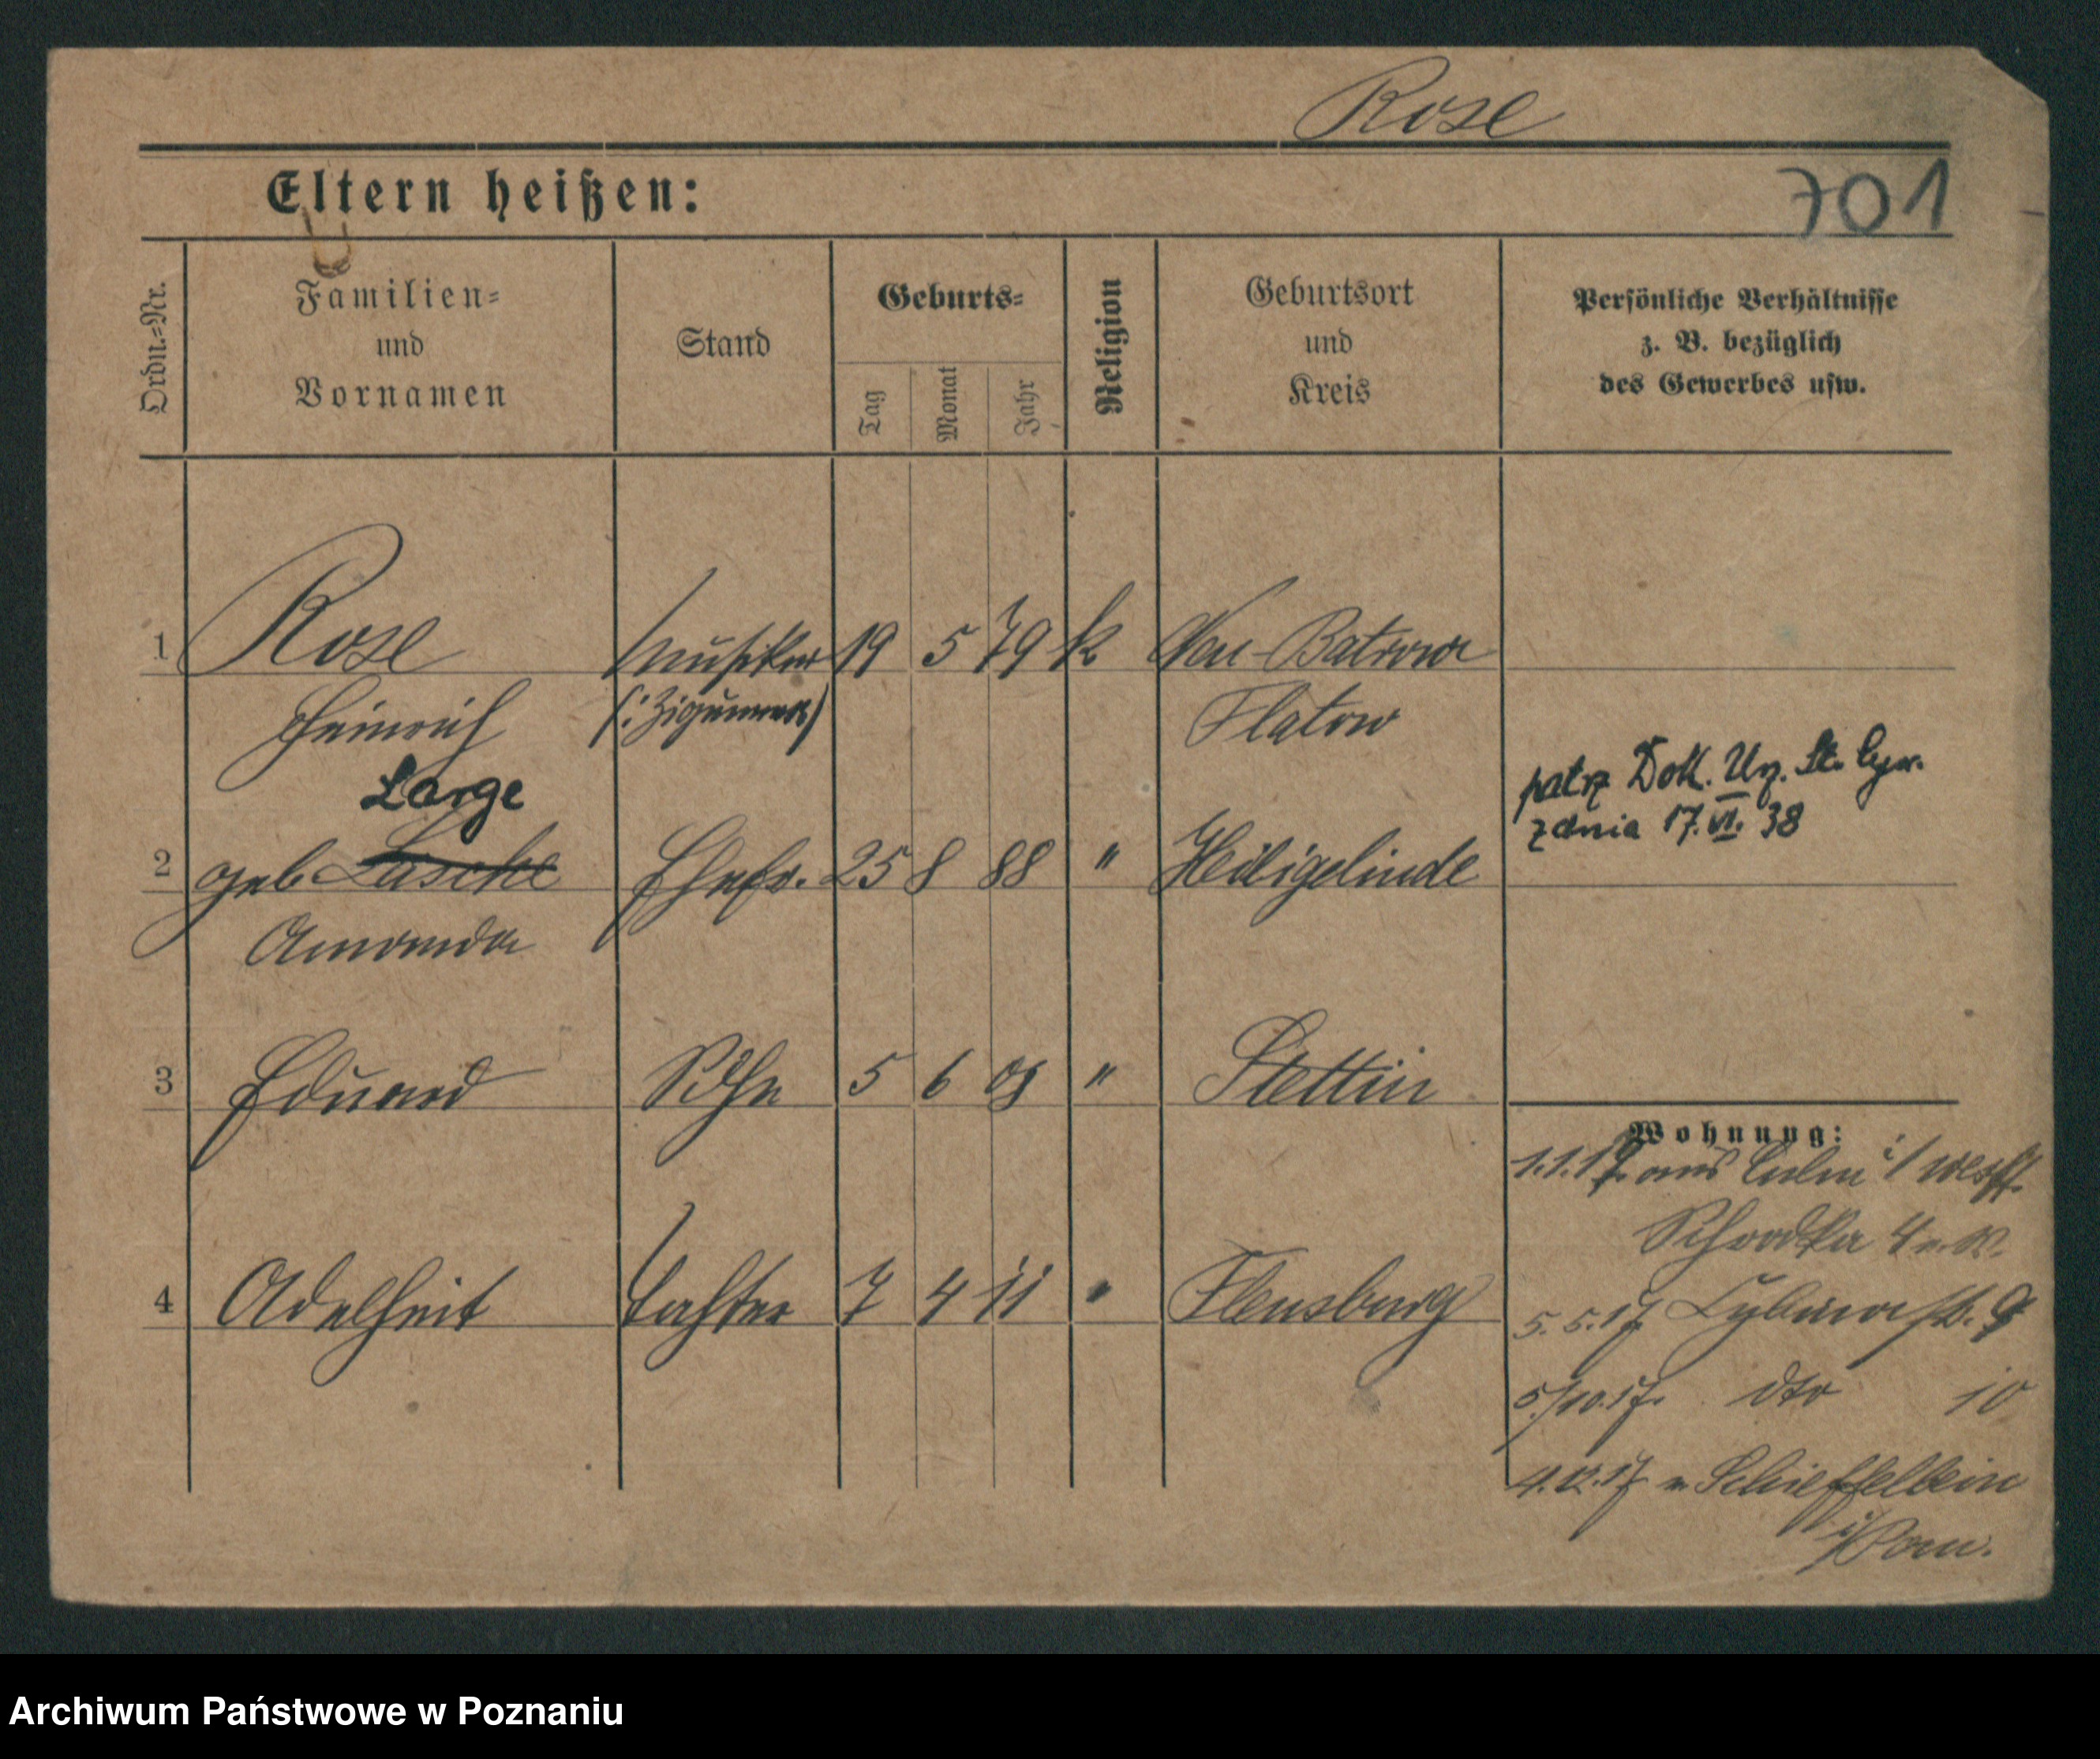 Rose
Eltern heißen:
701
Ordn.-Nr.
Familien-
und
Vornamen
Stand
Geburts-
Tag
Monat
Jahr
Religion
Geburtsort
und
Kreis
Persönliche Verhältnisse
z. B. bezüglich
des Gewerbes usw.
1 Rose Musiker 19 5 79 k Neu-Batrow
Heinrich (: Zigeuner) Flatow
Large
patrz Dok. Urz. St. Cyw.
z dnia 17. VI. 38
2 geb Laschke Ehefr. 25 8 88 " Heiligelinde
Amanda
3 Eduard Sohn 5 6 09 " Stettin
Wohnung:
1.1.17. aus Culm i/westf.
Schrodka 4
4 Adelheit Tochter 7 4 11 " Flensburg
5.5.17 Cybina str. 9
5/10.17. dto 10
4.12.17 n. Schieffelbein
i/Pom.
Archiwum Państwowe w Poznaniu